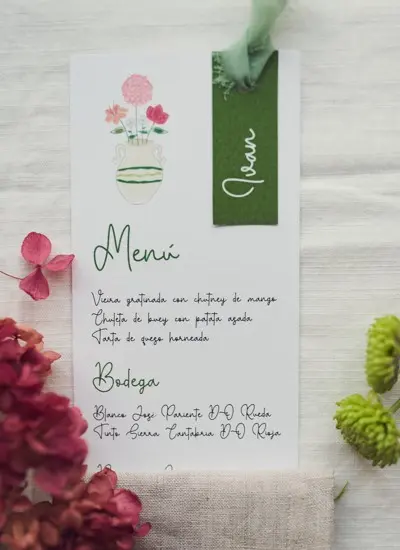 Ivan
Menú
Vieira gratinada con chutney de mango
Chuleta de buey con patata asada
Tarta de queso horneada
Bodega
Blanco José Pariente D-O Rueda
Tinto Sierra Cantabria D-O Rioja